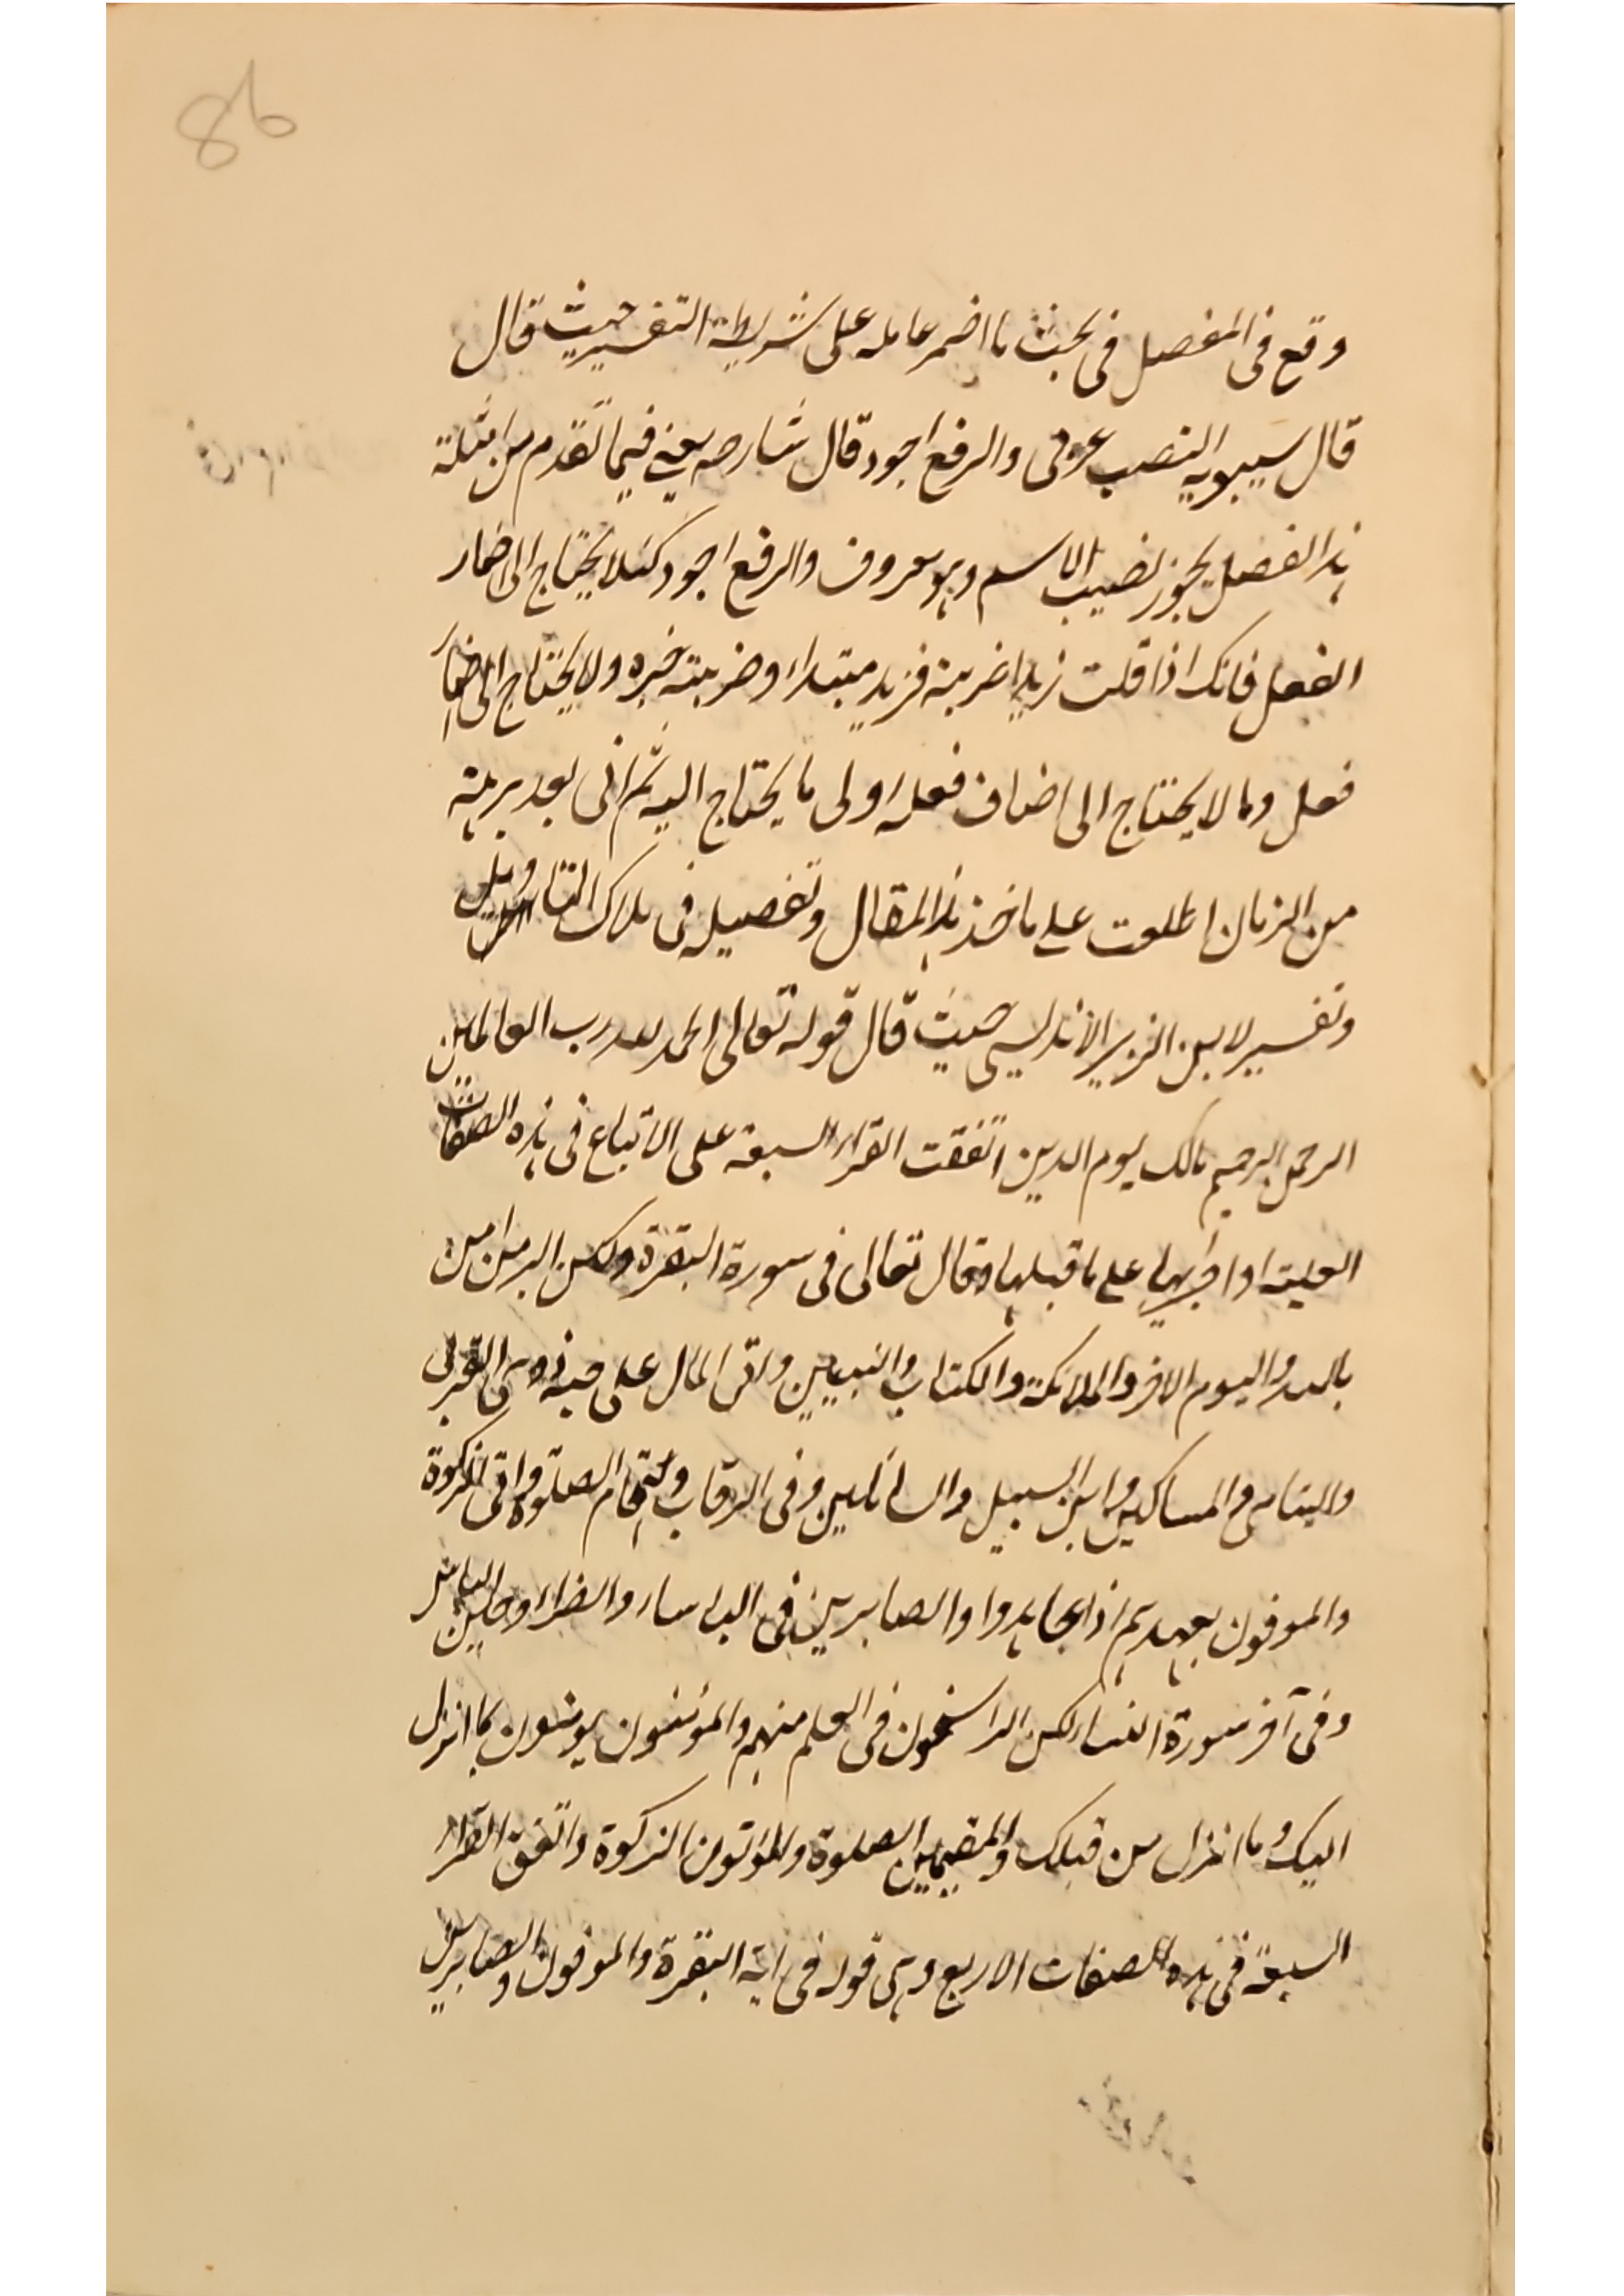 86
وقع فى المفصل فى بحث ما اضمر عامله على شريطة التفسير حيث قال
قال سيبويه النصب عربى والرفع اجود قال شارحه يعنى فيما تقدم من امثلة
هذا الفصل يجوز نصب الاسم وهو معروف والرفع اجود كيلا يحتاج الى اضمار
الفعل فانك اذا قلت زيدا ضربته فزيد مبتداء وضربته خبره ولا يحتاج الى اضمار
فعل وما لا يحتاج الى اضمار فعله اولى ما يحتاج اليه ثم انى بعد برهة
من الزمان اطلعت على ماخذ هذا المقال وتفصيله فى ملاك التاويل
وتفسير لابن الزبير الاندلسى حيث قال قوله تعالى الحمد لله رب العالمين
الرحمن الرحيم مالك يوم الدين اتفقت القراء السبعة على الاتباع فى هذه الصفات
العلية واجرائها على ما قبلها وقال تعالى فى سورة البقرة ولكن البر من امن
بالله واليوم الاخر والملائكة والكتاب والنبيين واتى المال على حبه ذوى القربى
واليتامى والمساكين وابن السبيل والسائلين وفى الرقاب واقام الصلوة واتى الزكوة
والموفون بعهدهم اذا عاهدوا والصابرين فى الباساء والضراء وحين الباس
وفى آخر سورة النساء لكن الراسخون فى العلم منهم والمؤمنون يومنون بما انزل
اليك وما انزل من قبلك والمقيمين الصلوة والمؤتون الزكوة واتفق القراء
السبعة فى هذه الصفات الاربع وهى قوله فى اية البقرة والموفون والصابرين